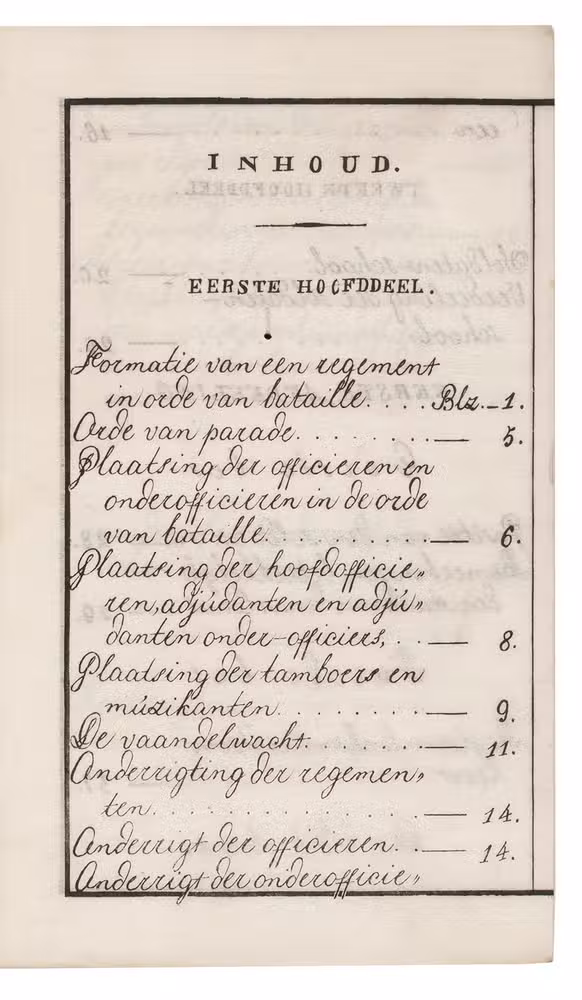 INHOUD.
EERSTE HOOFDDEEL.
Formatie van een regement
in orde van bataille. . . . Blz. — 1.
Orde van parade. . . . . . . . — 5.
Plaatsing der officieren en
onderofficieren in de orde
van bataille. . . . . . . . . . — 6.
Plaatsing der hoofdofficie„
ren, adjúdanten en adjú„
danten onder-officiers, . . — 8.
Plaatsing der tamboers en
múzikanten. . . . . . . . . — 9.
De vaandelwacht. . . . . . . — 11.
Onderrigting der regemen„
ten. . . . . . . . . . . . . . . — 14.
Onderrigt der officieren. . . — 14.
Onderrigt der onderofficie„